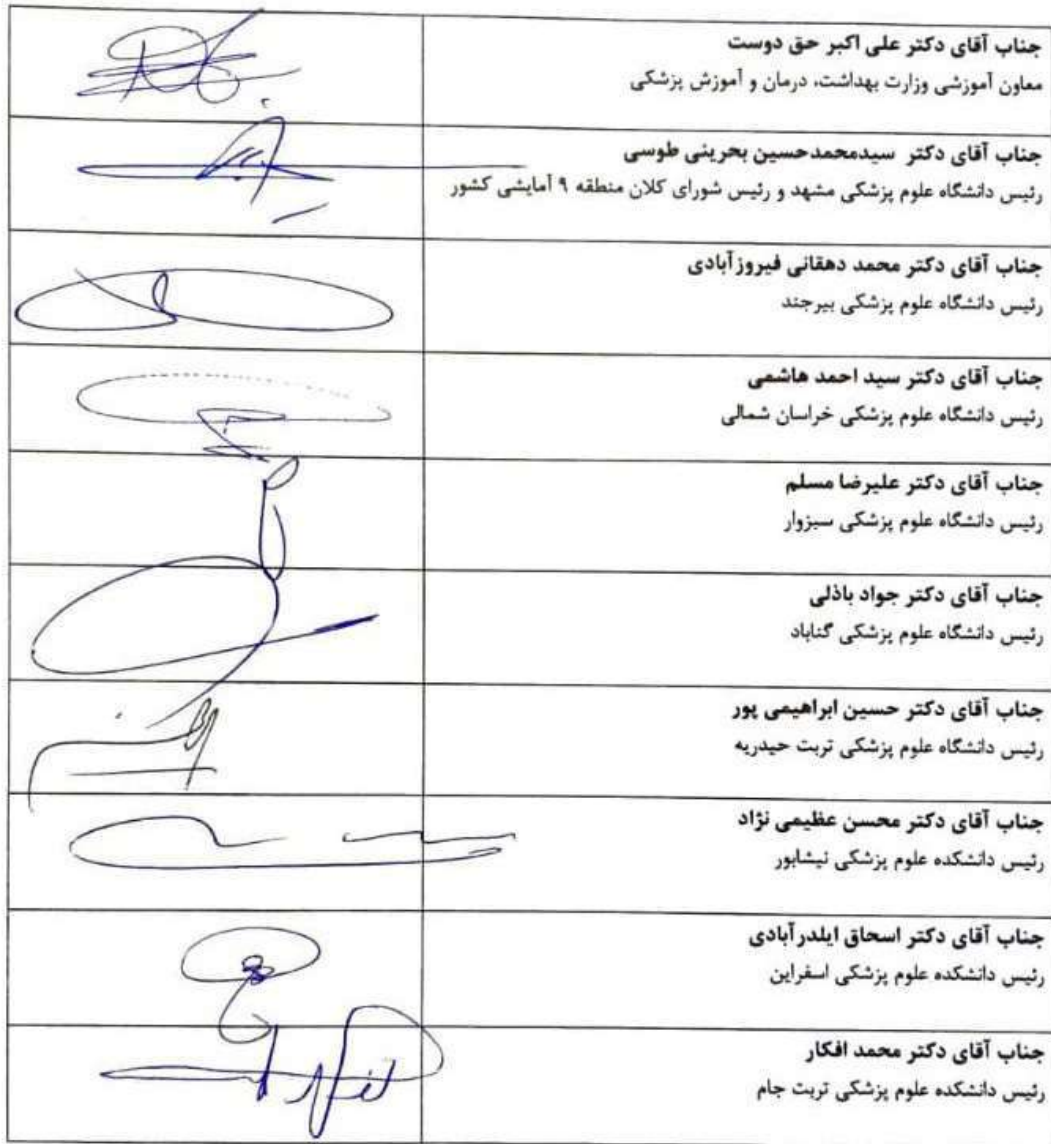 جناب آقای دکتر علی اکبر حق دوست
معاون آموزشی وزارت بهداشت، درمان و آموزش پزشکی
جناب آقای دکتر سیدمحمدحسین بحرینی طوسی
رئیس دانشگاه علوم پزشکی مشهد و رئیس شورای کلان منطقه ۹ آمایشی کشور
جناب آقای دکتر محمد دهقانی فیروزآبادی
رئیس دانشگاه علوم پزشکی بیرجند
جناب آقای دکتر سید احمد هاشمی
رئیس دانشگاه علوم پزشکی خراسان شمالی
جناب آقای دکتر علیرضا مسلم
رئیس دانشگاه علوم پزشکی سبزوار
جناب آقای دکتر جواد باذلی
رئیس دانشگاه علوم پزشکی گناباد
جناب آقای دکتر حسین ابراهیمی پور
رئیس دانشگاه علوم پزشکی تربت حیدریه
جناب آقای دکتر محسن عظیمی نژاد
رئیس دانشکده علوم پزشکی نیشابور
جناب آقای دکتر اسحاق ایلدرآبادی
رئیس دانشکده علوم پزشکی اسفراین
جناب آقای دکتر محمد افکار
رئیس دانشکده علوم پزشکی تربت جام